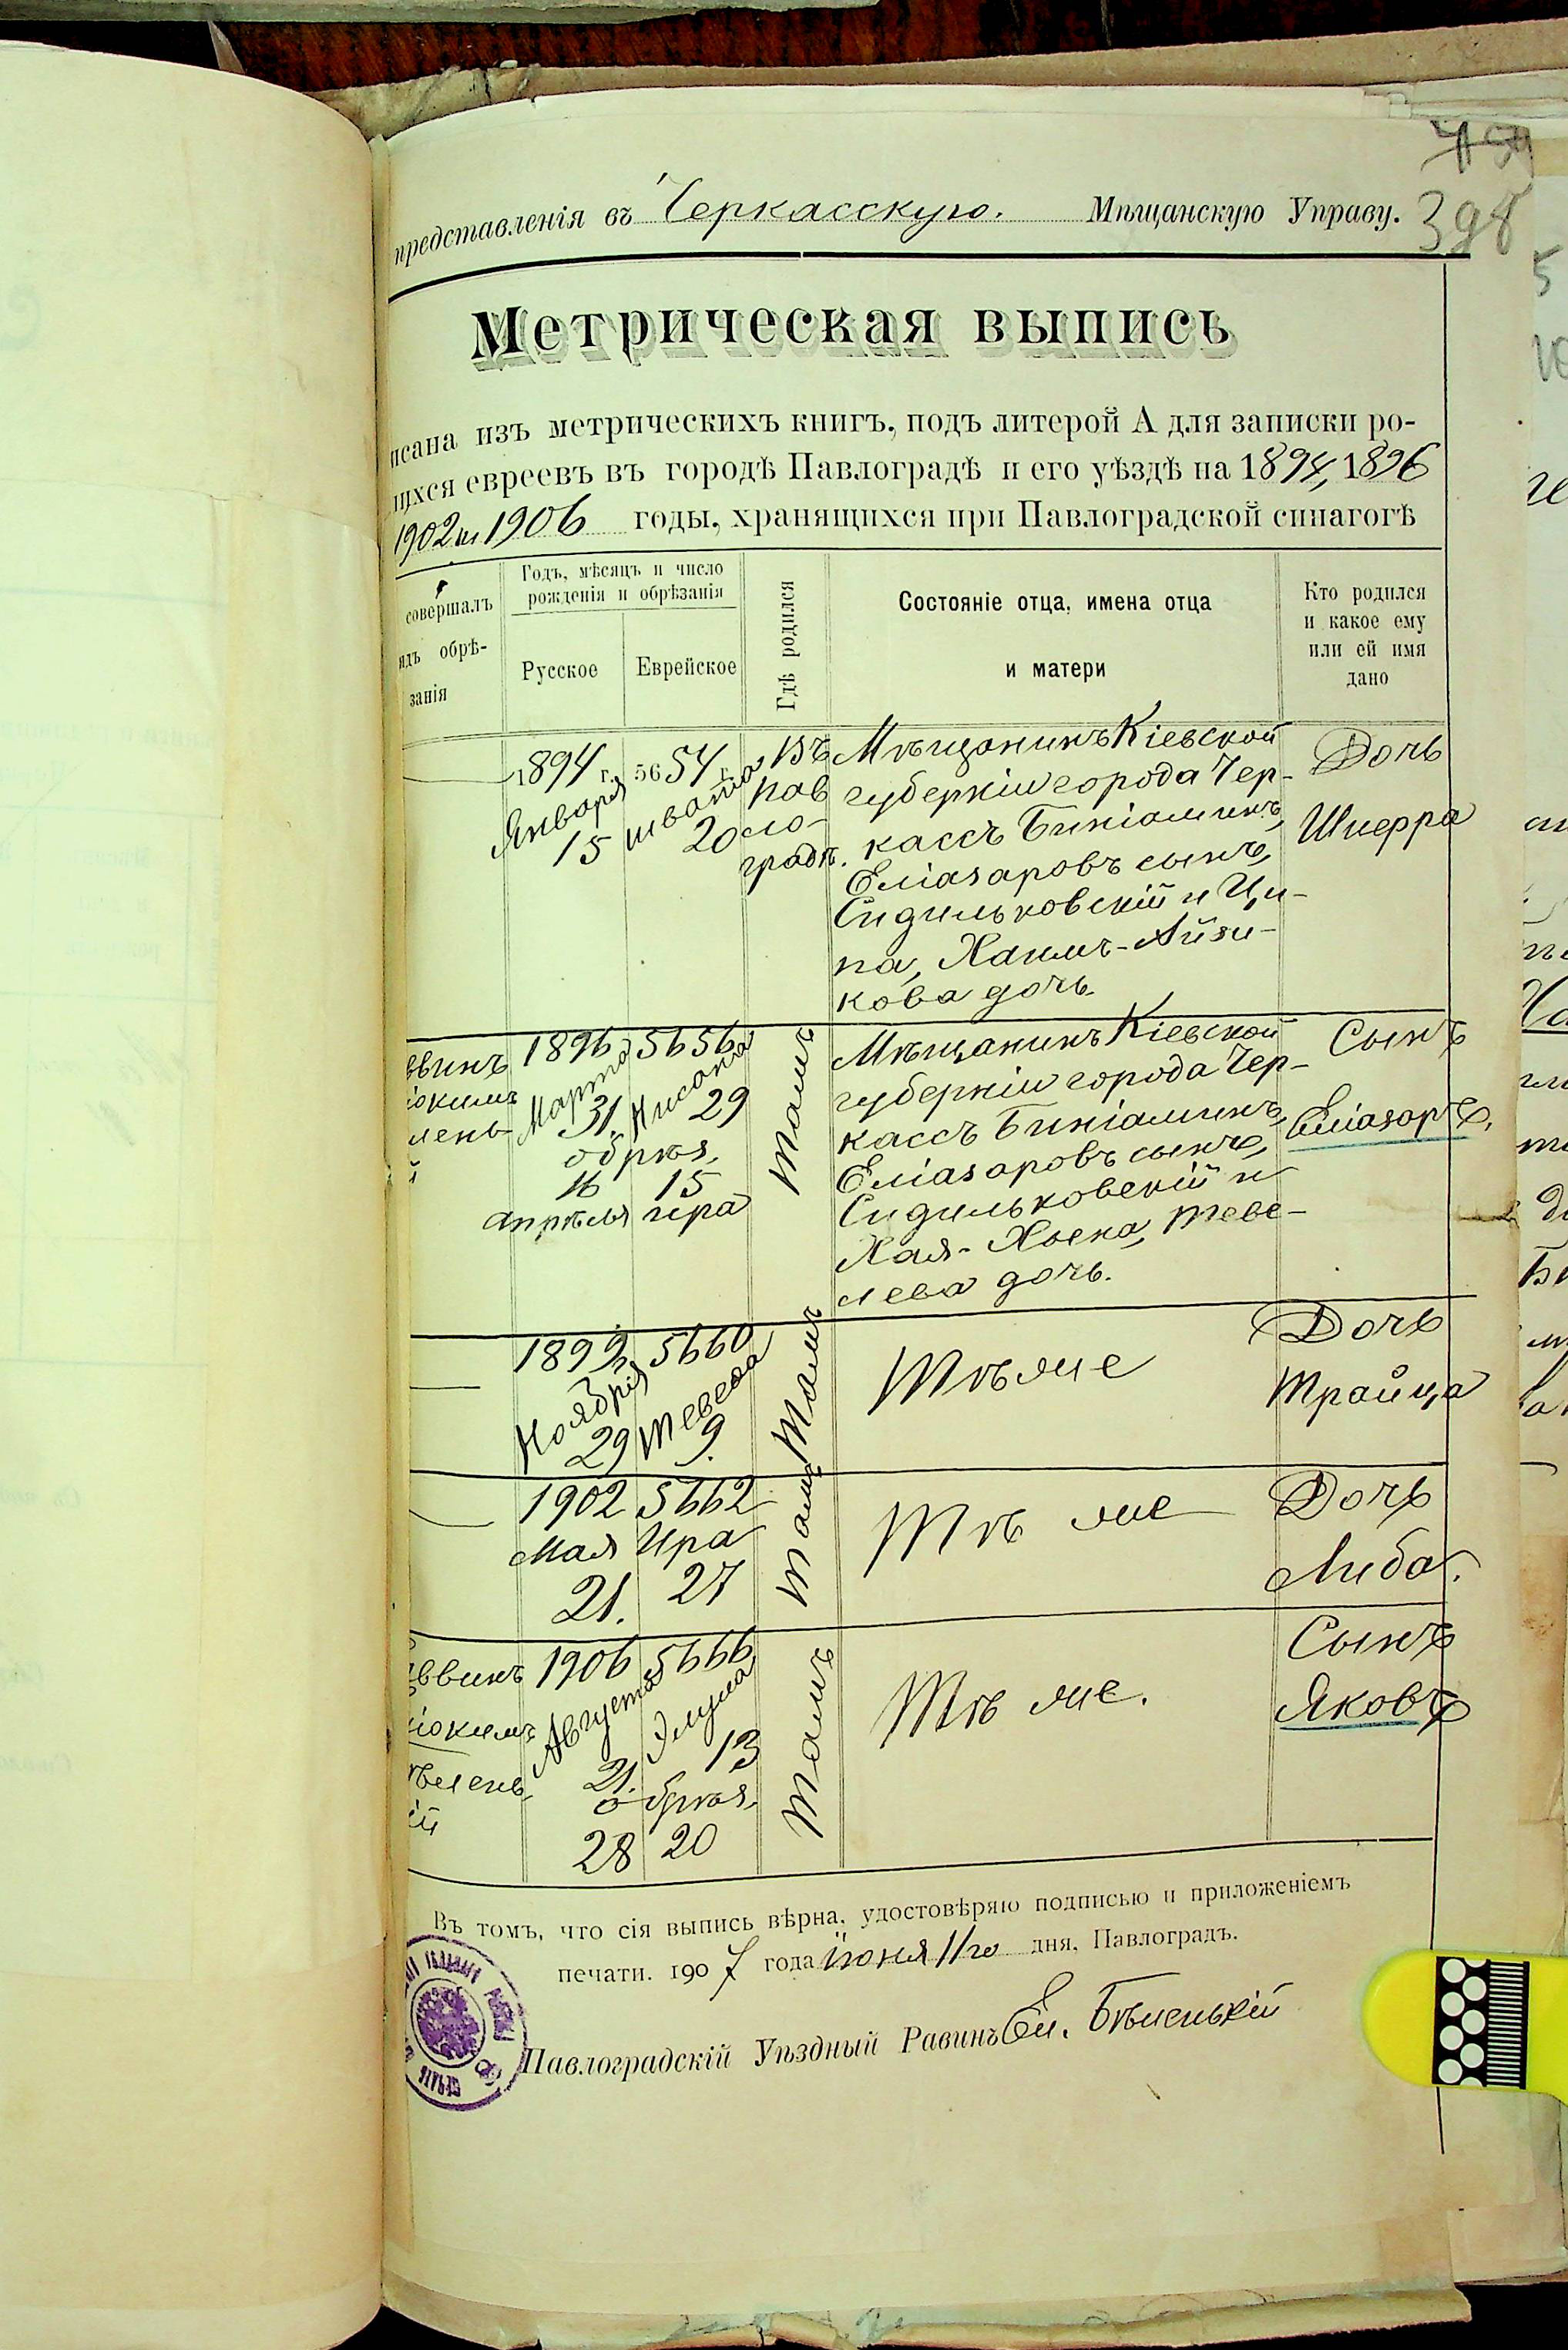 398
представленія въ Черкасскую. Мѣщанскую Управу.
Метрическая выпись
исана изъ метрическихъ книгъ, подъ литерой А для записки ро-
щихся евреевъ въ городѣ Павлоградѣ и его уѣздѣ на 1894, 1896
1902 и 1906 годы, хранящихся при Павлоградской синагогѣ
совершалъ
обрѣ-
занія
Годъ, мѣсяцъ и число
рожденія и обрѣзанія
Русское
Еврейское
Гдѣ родился
Состояніе отца, имена отца
и матери
Кто родился
и какое ему
или ей имя
дано
1894 г.
Января
15
5654 г.
Швата
20
Въ
Пав
ло-
градѣ.
Мѣщанинъ Кіевской
губерніи города Чер-
кассъ Биніаминъ,
Еліазаровъ сынъ,
Сидильковскій и Ци-
па, Хаимъ-Айзи-
кова дочь.
Дочь
Шперра
ввинъ
іокимъ
лень
й
1896
Марта
31.
5656
Нисана
29
обрѣз.
16 15
апрѣля ира
Тамъ
Мѣщанинъ Кіевской
губерніи города Чер-
кассъ Биніаминъ,
Еліазаровъ сынъ,
Сидильковскій и
Хая-Хьена, Теве-
лева дочь.
Сынъ
Еліазаръ.
1899
Ноября
29
5660
Тевеса
9.
Тамъ
Тѣ же
Дочь
Трайца
1902
Мая
21.
5662
Ира
27
Тамъ
Тѣ же
Дочь
Либа.
аввинъ
іокимъ
ѣлень
ій
1906
Августа
21.
5666
Элула
13
обрѣз.
28 20
Тамъ
Тѣ же.
Сынъ
Яковъ
Въ томъ, что сія выпись вѣрна, удостовѣряю подписью и приложеніемъ
печати. 1907 года Іюня 11го дня, Павлоградъ.
Павлоградскій Уѣздный Равинъ Ей. Бѣленькій